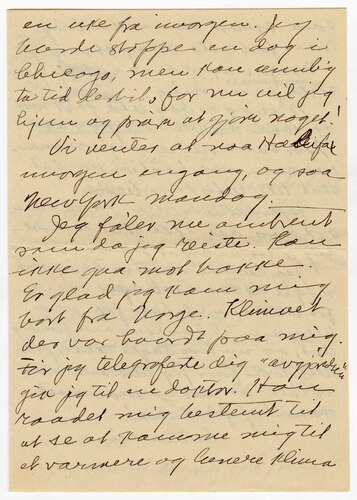 en uke fra imorgen. Jeg
burde stoppe en dag i
Chicago, men kan umulig
ta tid dertil, for nu vil jeg
hjem og prøve at gjøre noget!
Vi venter at naa Halifax
imorgen engang, og saa
New York mandag.
Jeg føler me omtrent
som da jeg reiste. Kan
ikke gaa mot bakke.
Er glad jeg kom mig
bort fra Norge. Klimaet
der var haardt paa mig.
Før jeg telegraferte dig "avgjørelsen"
gik jeg til en doktor. Han
raadet mig bestemt til
at se at komme mig til
et varmere og lunere klima